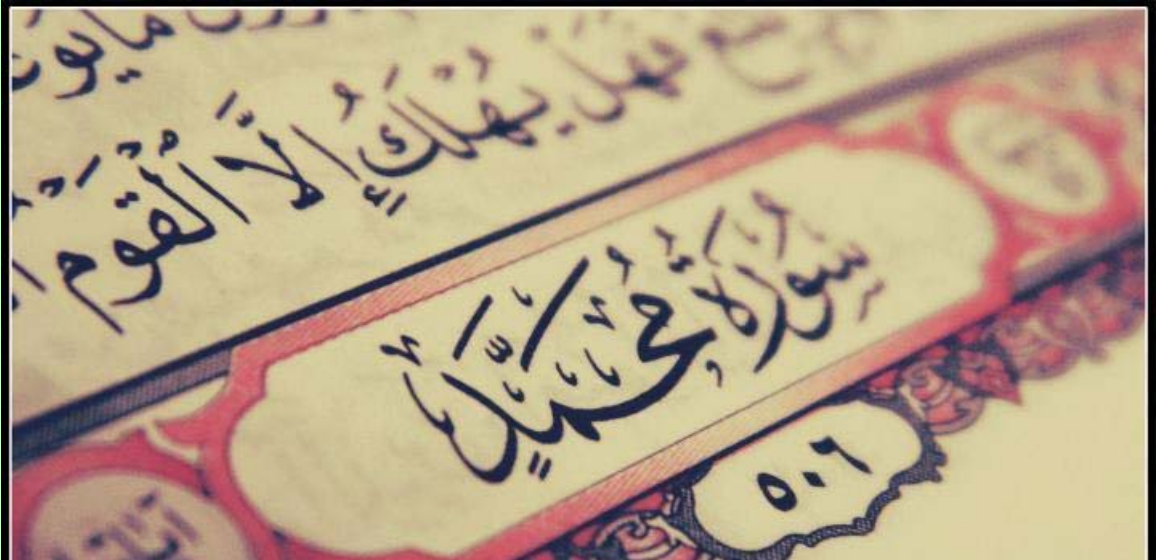 مَا
فَهَلْ يُهْلَكُ إِلَّا ٱلْقَوْمُ
سُورَةُ مُحَمَّدٍ
٥٠٦